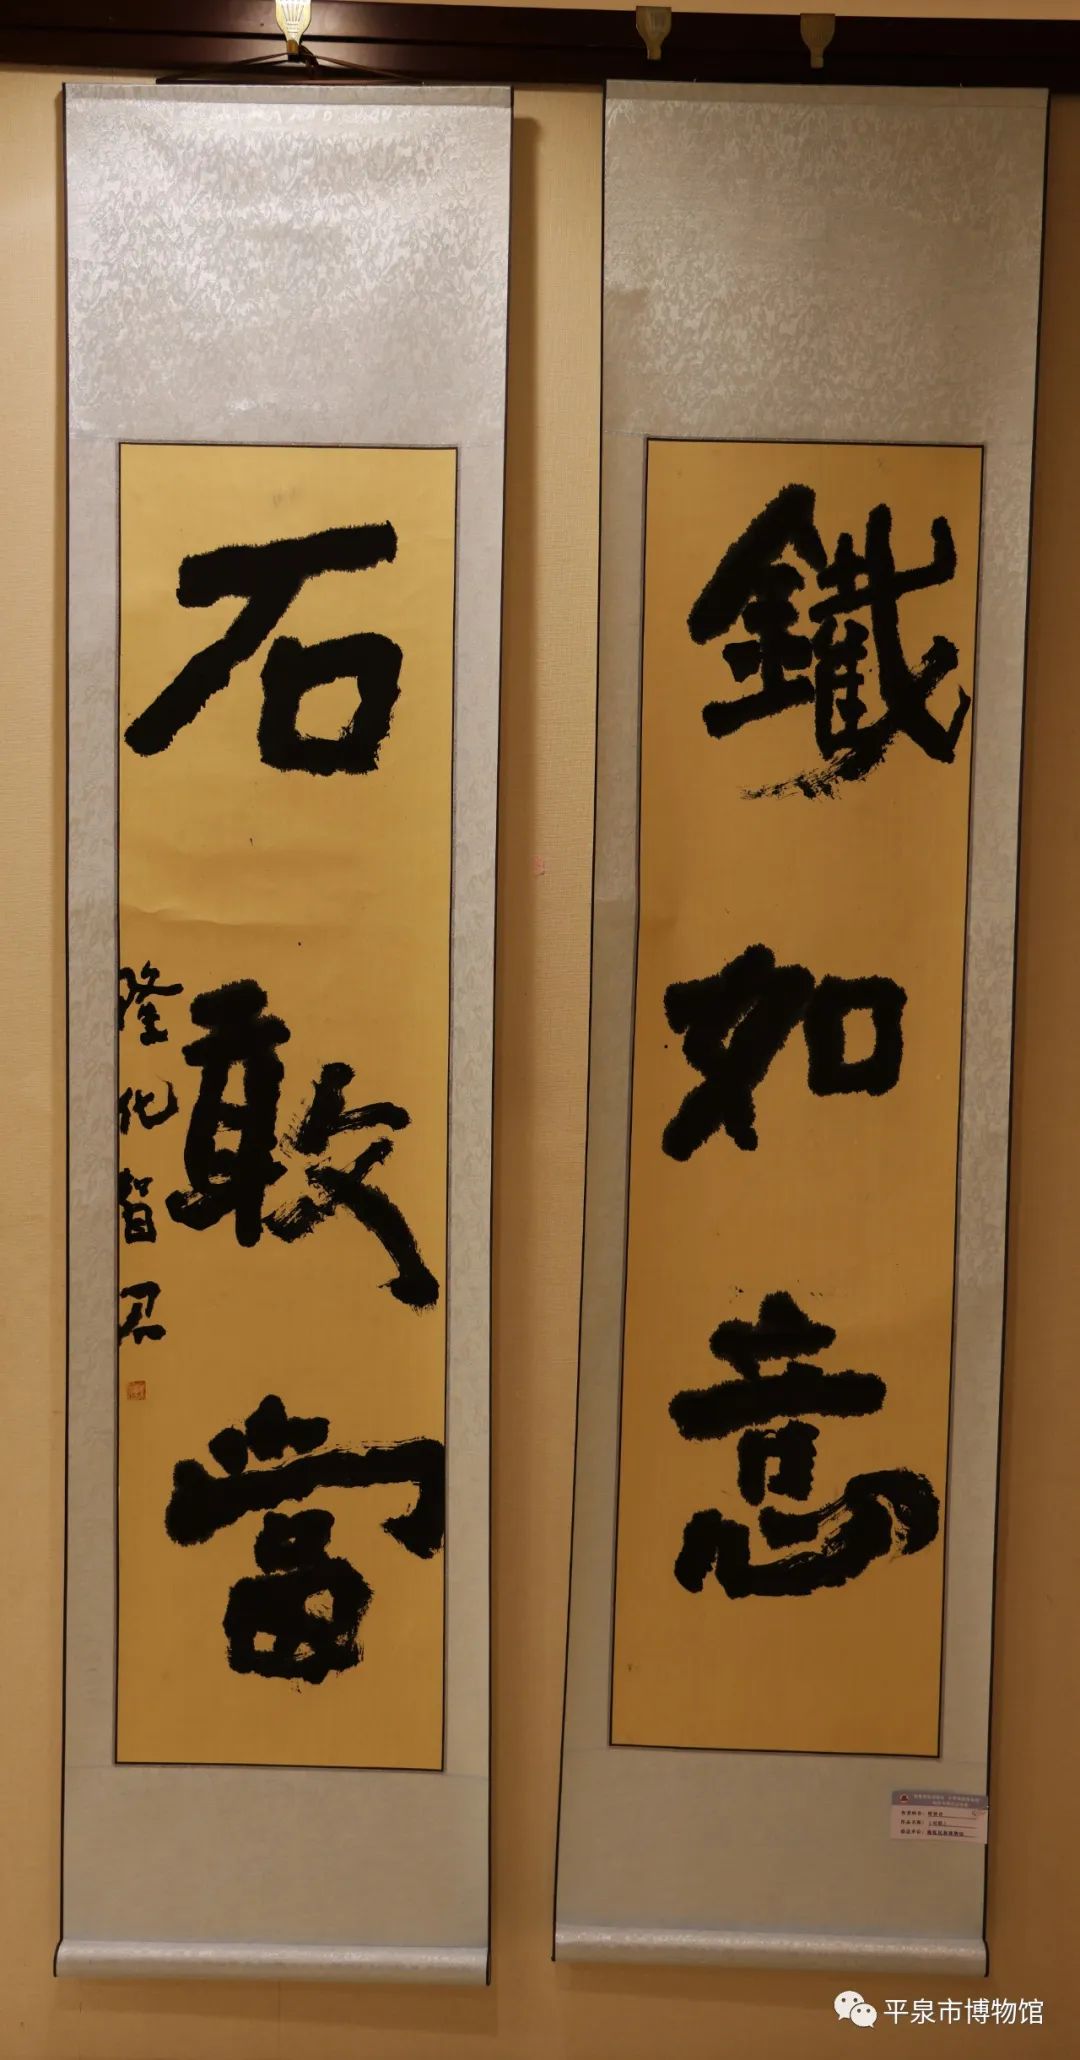 鐵如意
石敢當
隆化智忍
平泉市博物馆